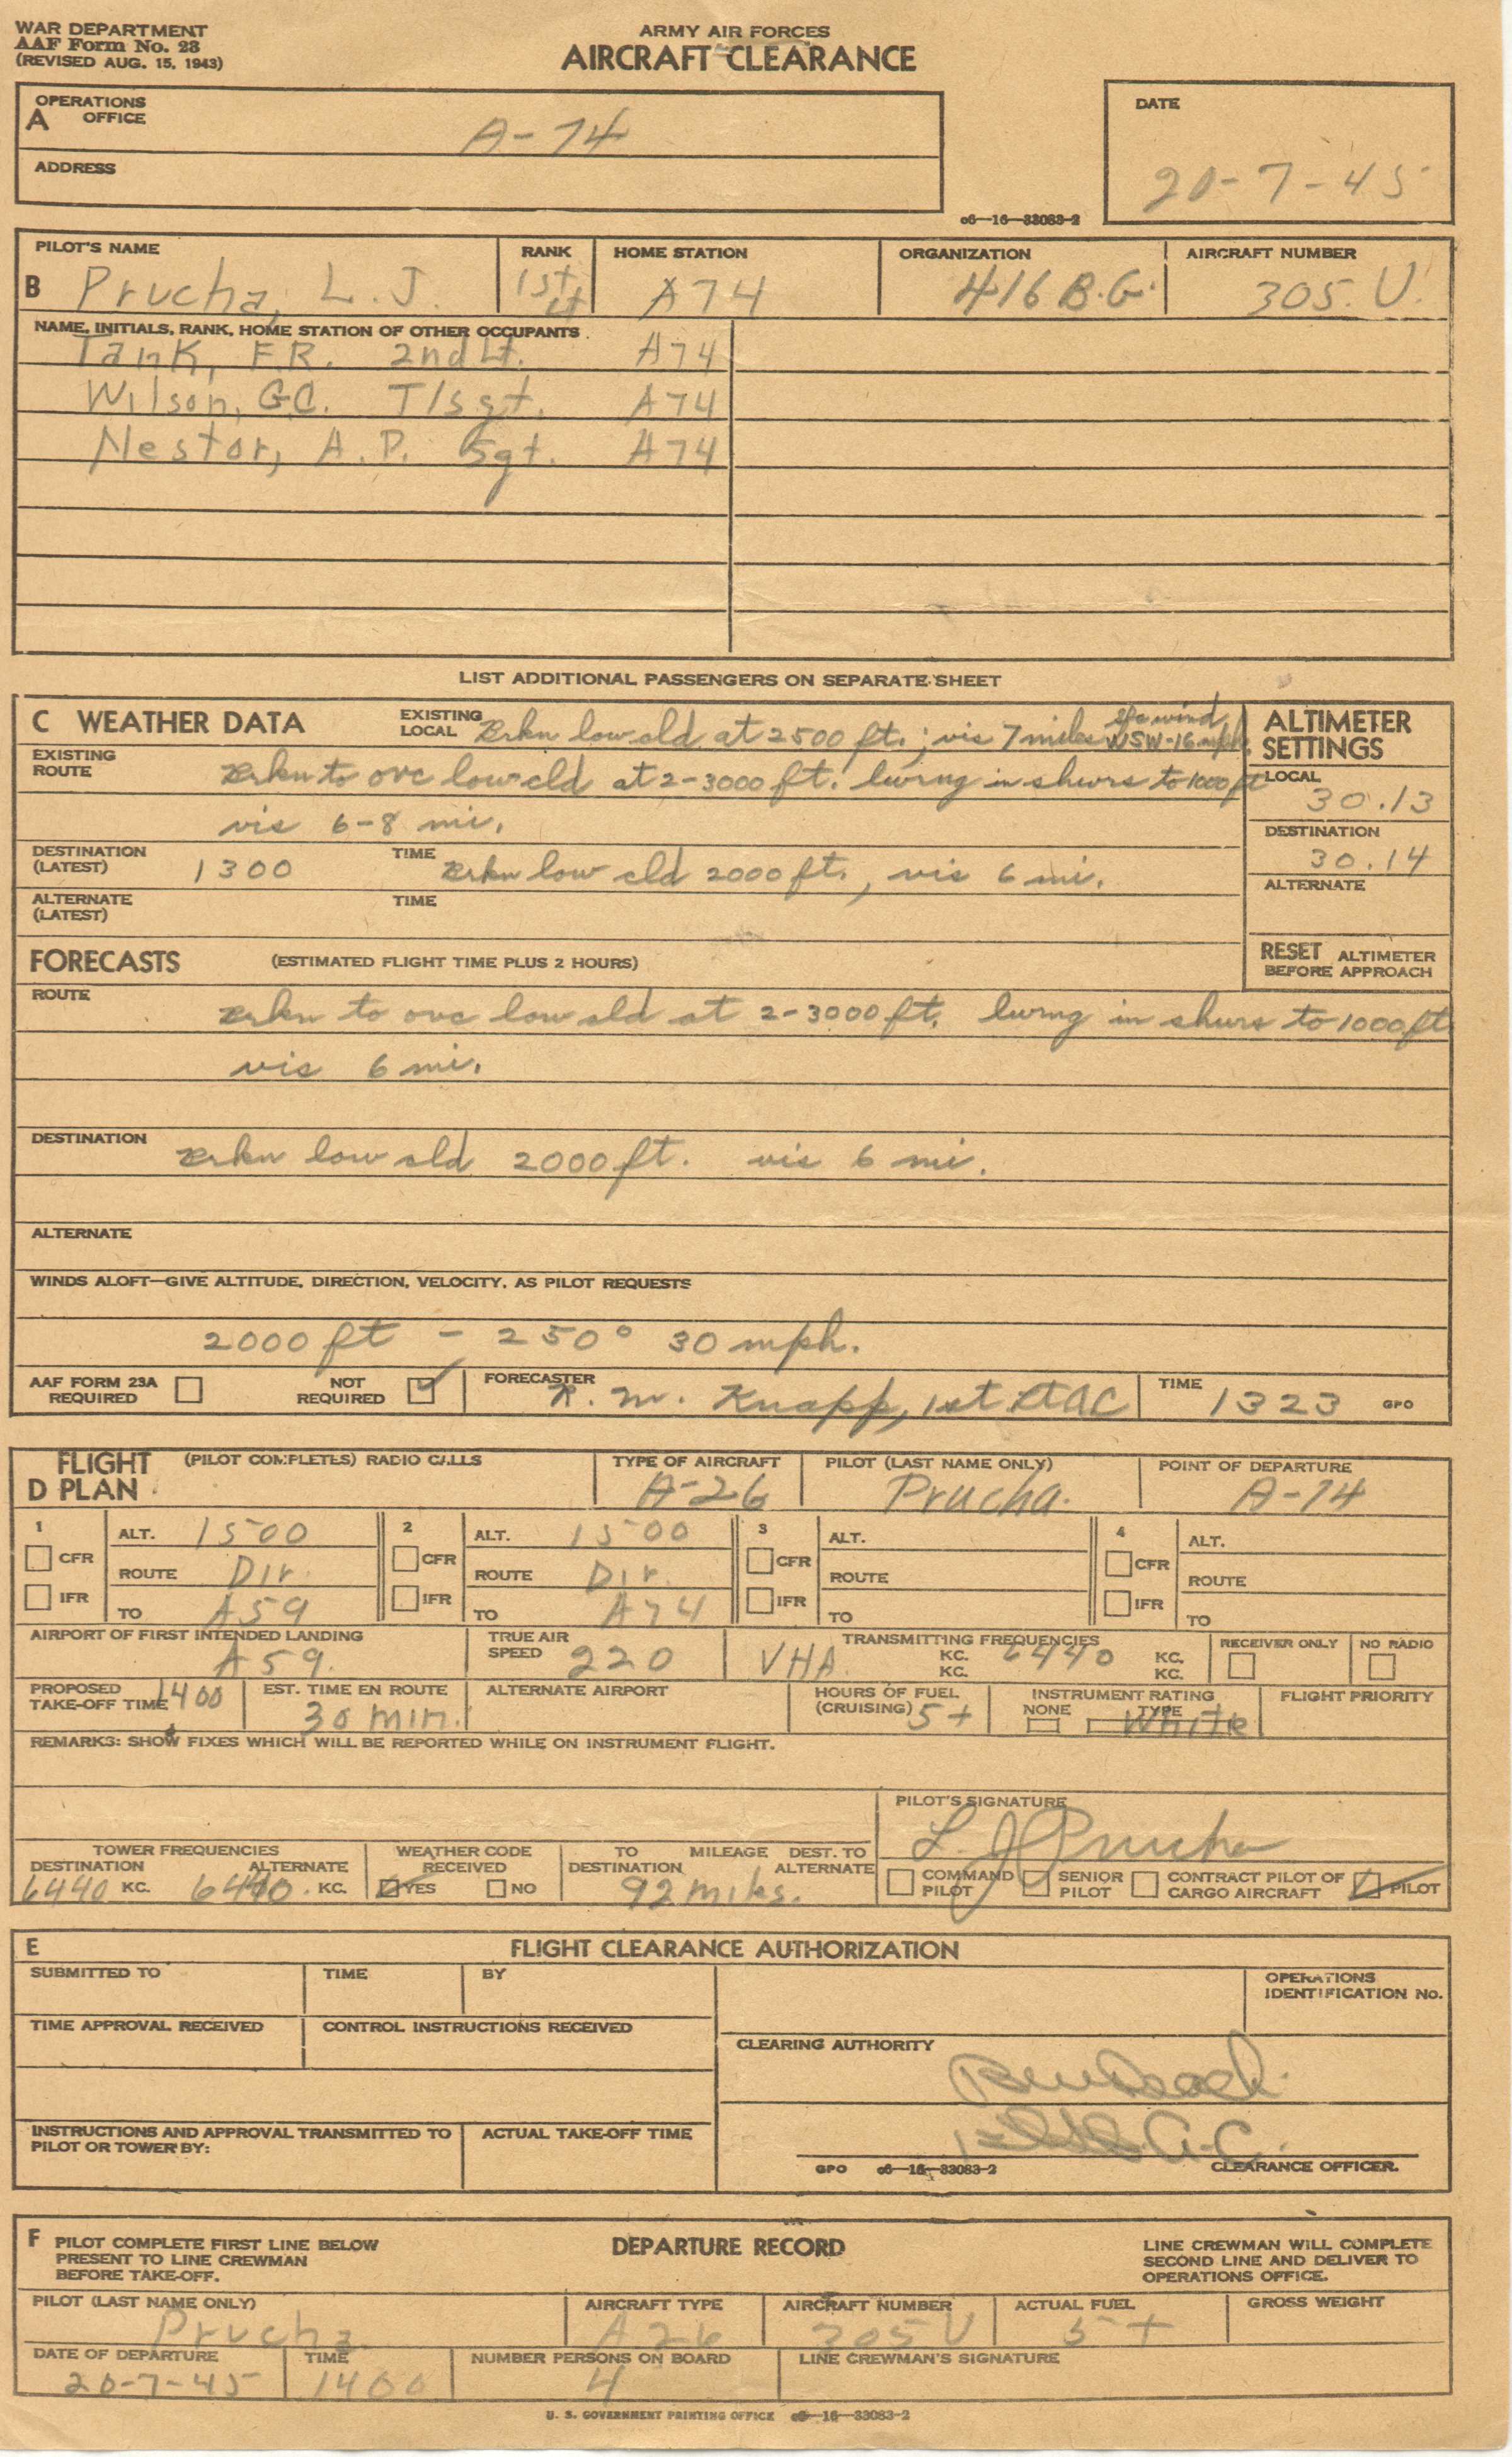 WAR DEPARTMENT
AAF Form No. 23
(REVISED AUG. 15, 1943)
ARMY AIR FORCES
AIRCRAFT CLEARANCE
A OPERATIONS OFFICE A-74
ADDRESS
DATE
20-7-45
c6—16—33083-2
B PILOT'S NAME RANK HOME STATION ORGANIZATION AIRCRAFT NUMBER
Prucha, L. J. 1st Lt A74 416 B.G. 305. U.
NAME, INITIALS, RANK, HOME STATION OF OTHER OCCUPANTS
Tank, F.R. 2nd Lt. A74
Wilson, G.C. T/sgt. A74
Nestor, A.P. Sgt. A74
LIST ADDITIONAL PASSENGERS ON SEPARATE SHEET
C WEATHER DATA
EXISTING LOCAL low cld at 2500 ft.; vis 7 miles sfc wind WSW-16 mph.
EXISTING ROUTE to ovc low cld at 2-3000 ft. lwrng in shwrs to 1000 ft
vis 6-8 mi.
DESTINATION (LATEST) 1300 TIME low cld 2000 ft., vis 6 mi.
ALTERNATE (LATEST) TIME
ALTIMETER SETTINGS
LOCAL
30.13
DESTINATION
30.14
ALTERNATE
RESET ALTIMETER BEFORE APPROACH
FORECASTS (ESTIMATED FLIGHT TIME PLUS 2 HOURS)
ROUTE to ovc low cld at 2-3000 ft. lwrng in shwrs to 1000 ft
vis 6 mi.
DESTINATION low cld 2000 ft. vis 6 mi.
ALTERNATE
WINDS ALOFT—GIVE ALTITUDE, DIRECTION, VELOCITY, AS PILOT REQUESTS
2000 ft - 250° 30 mph.
AAF FORM 23A REQUIRED NOT REQUIRED FORECASTER R. M. Knapp, 1st Lt AC TIME 1323 GPO
D FLIGHT PLAN (PILOT COMPLETES) RADIO CALLS TYPE OF AIRCRAFT PILOT (LAST NAME ONLY) POINT OF DEPARTURE
A-26 Prucha. A-74
1 ALT. 1500 2 ALT. 1500 3 ALT. 4 ALT.
CFR CFR CFR CFR
ROUTE Dir. ROUTE Dir. ROUTE ROUTE
IFR IFR IFR IFR
TO A59 TO A74 TO TO
AIRPORT OF FIRST INTENDED LANDING TRUE AIR SPEED TRANSMITTING FREQUENCIES RECEIVER ONLY NO RADIO
A59. 220 VHA KC. 6440 KC.
KC. KC.
PROPOSED TAKE-OFF TIME 1400 EST. TIME EN ROUTE 30 min. ALTERNATE AIRPORT HOURS OF FUEL (CRUISING) 5+ INSTRUMENT RATING NONE TYPE White FLIGHT PRIORITY
REMARKS: SHOW FIXES WHICH WILL BE REPORTED WHILE ON INSTRUMENT FLIGHT.
PILOT'S SIGNATURE
L. J. Prucha
TOWER FREQUENCIES WEATHER CODE RECEIVED TO DESTINATION MILEAGE DEST. TO ALTERNATE
DESTINATION ALTERNATE
6440 KC. 6440. KC. YES NO 92 miles.
COMMAND PILOT SENIOR PILOT CONTRACT PILOT OF CARGO AIRCRAFT PILOT
E FLIGHT CLEARANCE AUTHORIZATION
SUBMITTED TO TIME BY OPERATIONS IDENTIFICATION No.
TIME APPROVAL RECEIVED CONTROL INSTRUCTIONS RECEIVED
CLEARING AUTHORITY
A.C.
INSTRUCTIONS AND APPROVAL TRANSMITTED TO PILOT OR TOWER BY: ACTUAL TAKE-OFF TIME
GPO c6—16—33083-2 CLEARANCE OFFICER.
F PILOT COMPLETE FIRST LINE BELOW
PRESENT TO LINE CREWMAN
BEFORE TAKE-OFF.
DEPARTURE RECORD
LINE CREWMAN WILL COMPLETE
SECOND LINE AND DELIVER TO
OPERATIONS OFFICE.
PILOT (LAST NAME ONLY) AIRCRAFT TYPE AIRCRAFT NUMBER ACTUAL FUEL GROSS WEIGHT
Prucha. A26 305 U 5+
DATE OF DEPARTURE TIME NUMBER PERSONS ON BOARD LINE CREWMAN'S SIGNATURE
20-7-45 1400 4
U. S. GOVERNMENT PRINTING OFFICE c6—16—33083-2